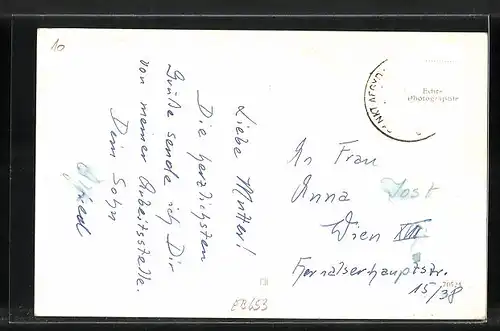 10
Liebe Mutter!
Die herzlichsten
Grüße sende ich Dir
von meiner Arbeitsstelle.
Dein Sohn
Alfred
SANKT AEGYD
Echte
Photographie
An Frau
Anna Jost
Wien XVII
Hernalserhauptstr.
15/38
EB653